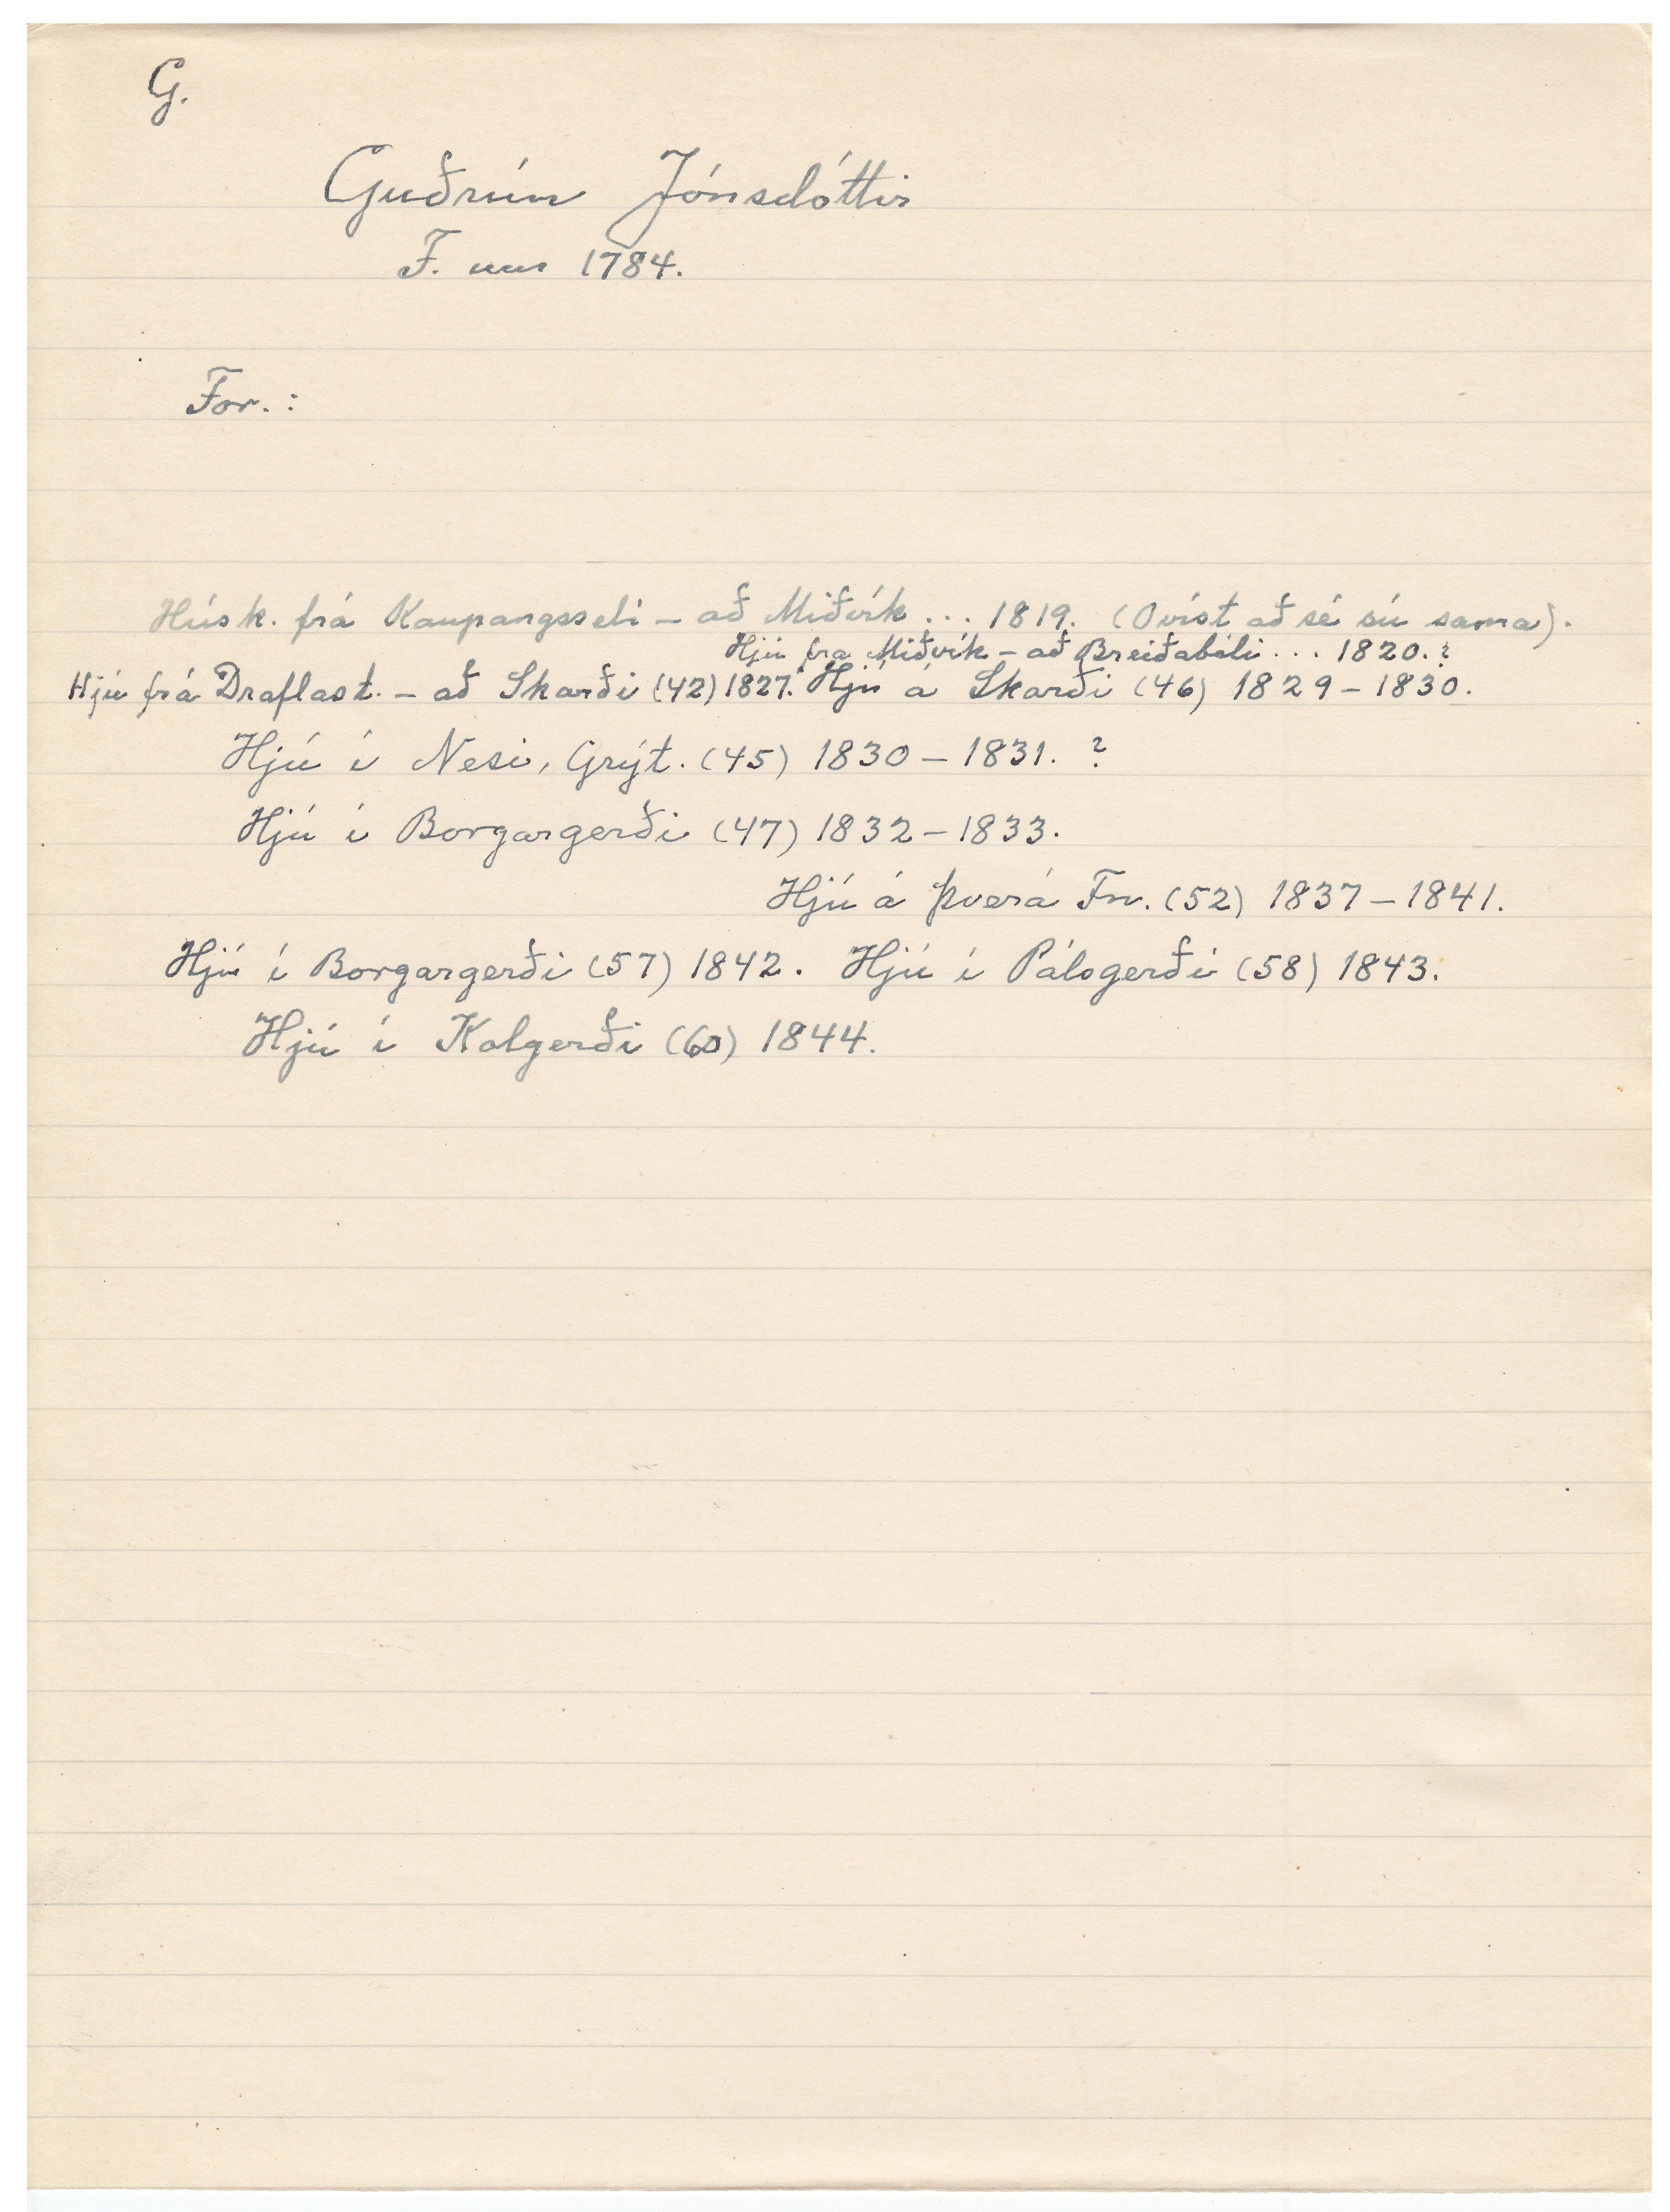 G.
Guðrún Jónsdóttir
F. um 1784.
For.:
Húsk. frá Kaupangsseli - að Miðvík ... 1819. (Óvíst að sé sú sama).
Hjú frá Miðvík - að Breiðabóli ... 1820.?
Hjú frá Draflast. - að Skarði (42) 1827. Hjú á Skarði (46) 1829 - 1830.
Hjú í Nesi, Grýt. (45) 1830 - 1831. ?
Hjú í Borgargerði (47) 1832 - 1833.
Hjú á Þverá Fn. (52) 1837 - 1841.
Hjú í Borgargerði (57) 1842. Hjú í Pálsgerði (58) 1843.
Hjú í Kolgerði (60) 1844.